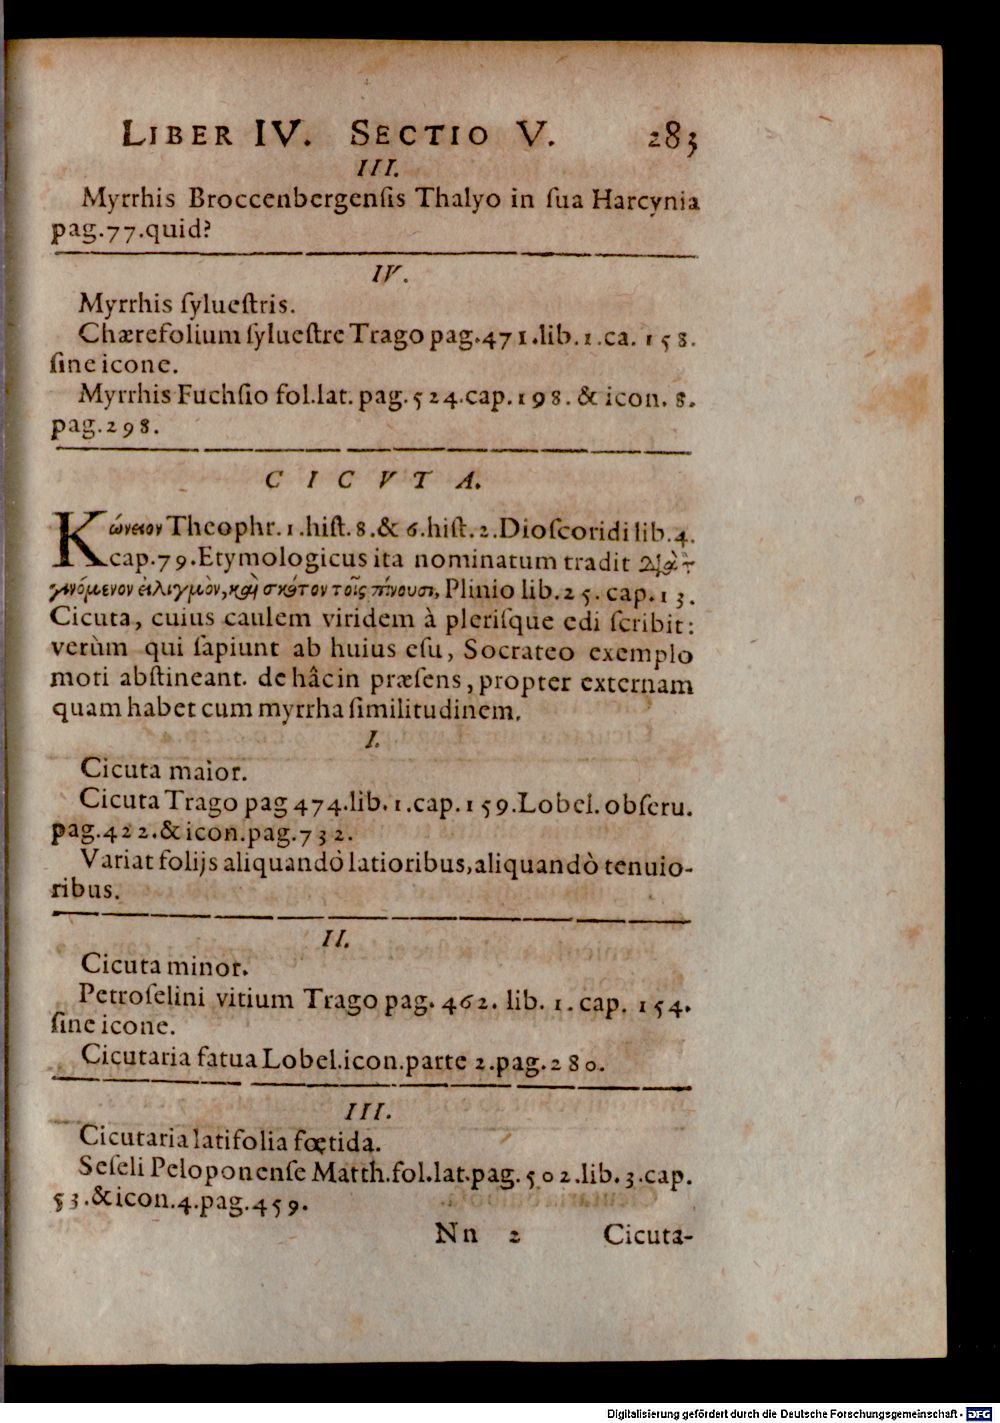 LIBER IV. SECTIO V. 283
III.
Myrrhis Broccenbergenſis Thalyo in ſua Harcynia
pag.77.quid?
IV.
Myrrhis ſylueſtris.
Chærefolium ſylueſtre Trago pag.471.lib.1.ca.158.
ſine icone.
Myrrhis Fuchſio fol.lat. pag.524.cap.198.& icon.8.
pag.298.
CICVTA.
Κώνειον Theophr.1.hiſt.8.& 6.hiſt.2.Dioſcoridi lib.4.
cap.79.Etymologicus ita nominatum tradit διὰ τὸν
γινόμενον εἰλιγμὸν, καὶ σκότον τοῖς πίνουσι, Plinio lib.25.cap.13.
Cicuta, cuius caulem viridem à pleriſque edi ſcribit:
verùm qui ſapiunt ab huius eſu, Socrateo exemplo
moti abſtineant. de hâc in præſens, propter externam
quam habet cum myrrha ſimilitudinem.
I.
Cicuta maior.
Cicuta Trago pag 474.lib.1.cap.159.Lobel.obſeru.
pag.422.& icon.pag.732.
Variat folijs aliquandò latioribus,aliquandò tenuio-
ribus.
II.
Cicuta minor.
Petroſelini vitium Trago pag. 462. lib. 1. cap. 154.
ſine icone.
Cicutaria fatua Lobel.icon.parte 2.pag.280.
III.
Cicutaria latifolia fœtida.
Seſeli Peloponenſe Matth.fol.lat.pag.502.lib.3.cap.
53.& icon.4.pag.459.
Nn 2 Cicuta-
Digitalisierung gefördert durch die Deutsche Forschungsgemeinschaft - DFG